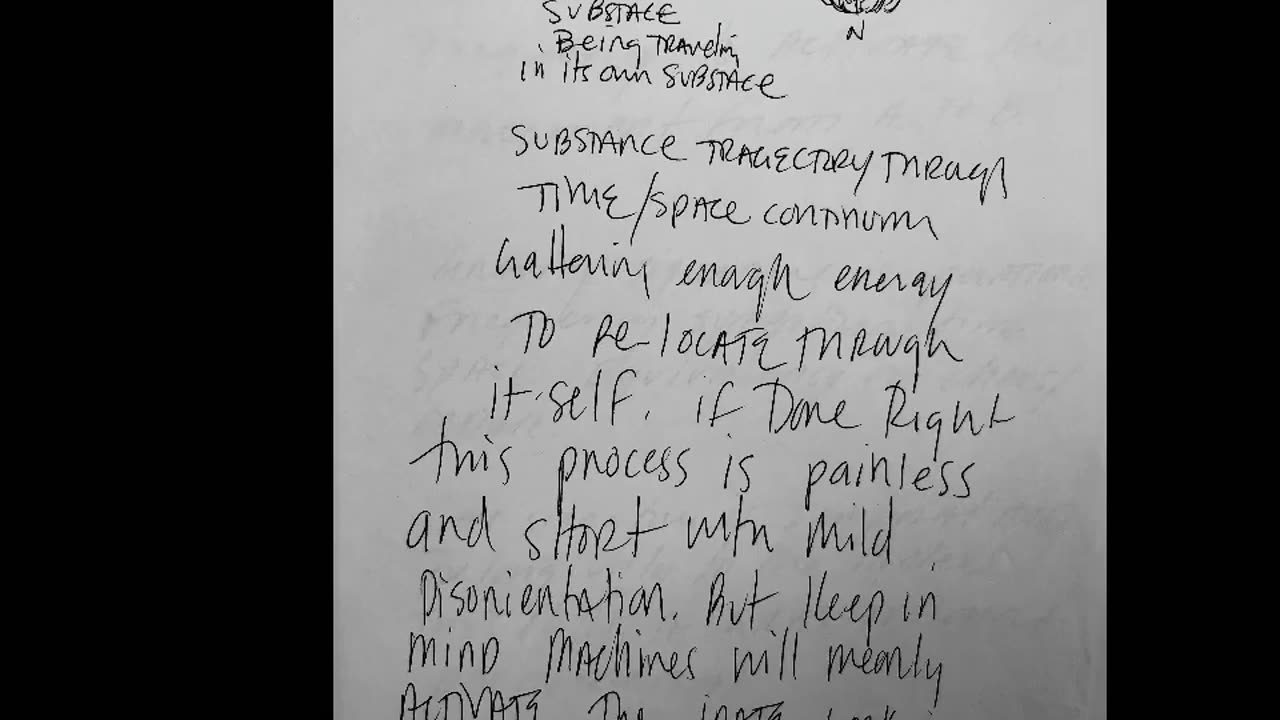 SUBSTACE
N
Being TRAVeling
in its own SUBSTACE
SUBSTANCE TRAGECTORY THROUGH
TIME/SPACE CONTINUM
Gathering enough energy
TO Re-LOCATE THROUGH
it-self. if Done Right
this process is painless
and sHort with Mild
Disorientation. But Keep in
MinD MAchines will mearly
ACTIVATE The